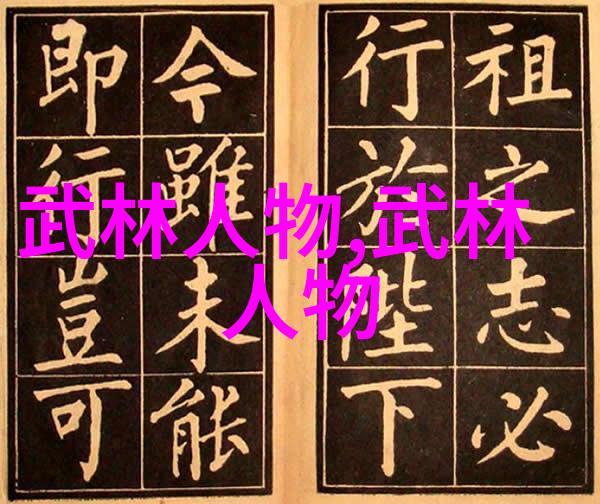 祖之志必
行於陛下
今雖未能
即行豈可
武林人物,武林
人物